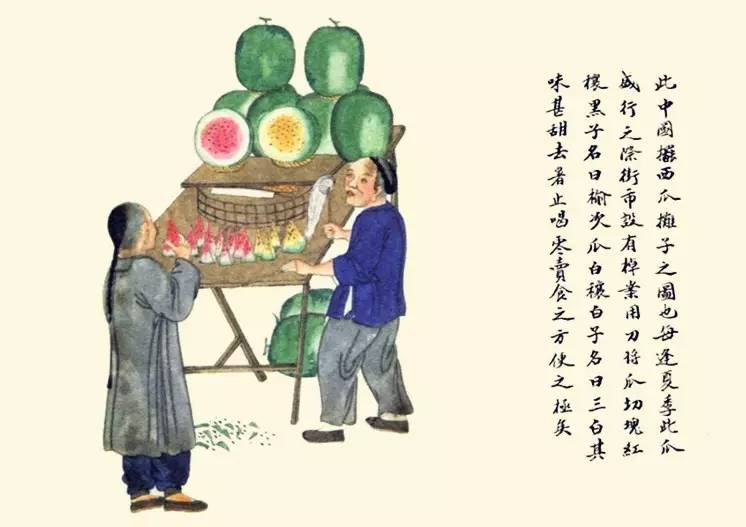 此中國擺西瓜攤子之圖也每逢夏季此瓜
盛行之際街市設有棹業用刀将瓜切塊紅
穰黑子名曰榆次瓜白穰白子名曰三白其
味甚甜去暑止喝零賣食之方便之極矣